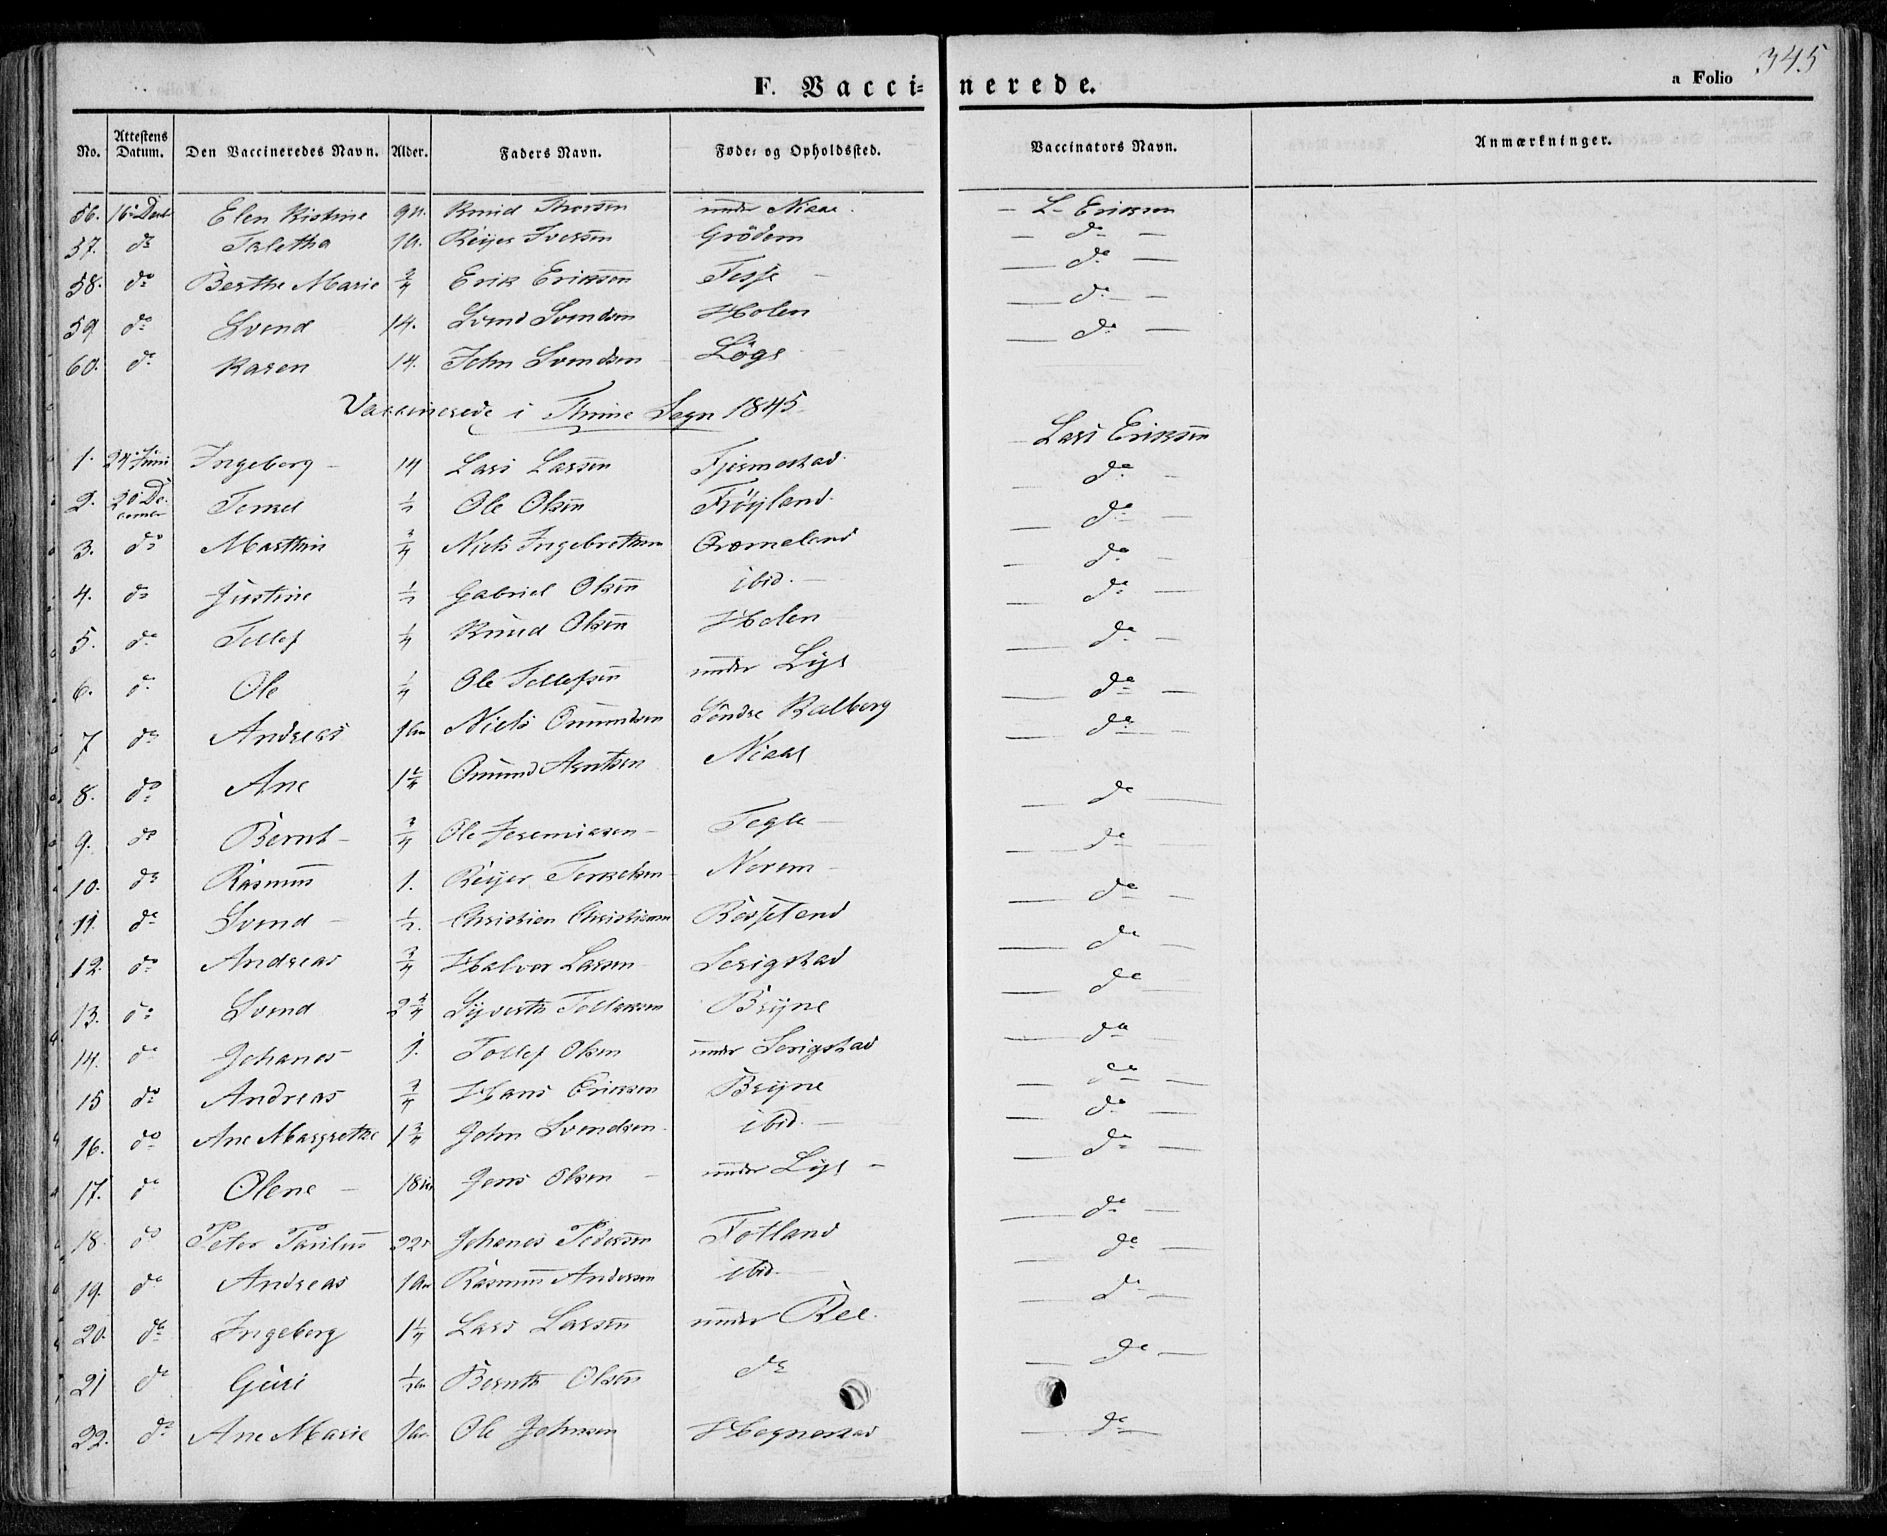 345
F. Vaccinerede. a Folio
No. Attestens Datum. Den Vaccineredes Navn. Alder. Faders Navn. Føde- og Opholdssted. Vaccinators Navn. Anmærkninger.
56. 16 Decbr Elen Kistine Knud Thorsen under Niaae. L. Eriksen
57. do Taletha Reijer Iversen Grödem do
58. do Berthe Marie 3/4 Erik Eriksen Fosse do
59 do Svend 14. Svend Svendsen Holen do
60. do Karen 14. John Svendsen Löge do
Vaccinerede i Thime Sogn 1845.
1. 24 Juni Ingeborg 14 Lars Larsen Fjermestad Lars Eriksen
2. 20 December Tonnes 1/2 Ole Olsen Fröyland do
3. do Marthin 3/4 Niels Ingebrethsen Qvorneland do
4. do Justine 1/2 Gabriel Olsen ibid. do
5. do Tollef 1/4 Knud Olsen Holen do
6. do Ole 1/4 Ole Tollefsen under Lye do
7 do Andreas 1 Niels Omundsen Söndre Kalberg do
8. do Ane Omund Arntsen Niaae do
9. do Bernt 3/4 Ole Jeremiasen Tegle do
10. do Rasmus 1. Reijer Torkelsen Norem do
11. do Svend 1/2. Christian Christiansen do
12. do Andreas 3/4 Halvor Larsen Serigstad do
13. do Svend 2 3/4 Syverth Tollaksen Bryne do
14. do Johanes 1. Tollef Olsen under Serigstad do
15 do Andreas 3/4 Hans Eriksen Bryne do
16. do Ane Margrethe 1 3/4 John Svendsen ibid. do
17. do Olene 18 Jens Olsen under Lye do
18. do Peter Paulus 22 Johanes Pedersen Fotland do
19. do Andreas 1 Rasmus Andersen ibid. do
20. do Ingeborg 1 1/4 Lars Larsen under Ree. do
21 do Guri Bernth Olsen do do
22. do Ane Marie 1 Ole Johnsen Hognestad do